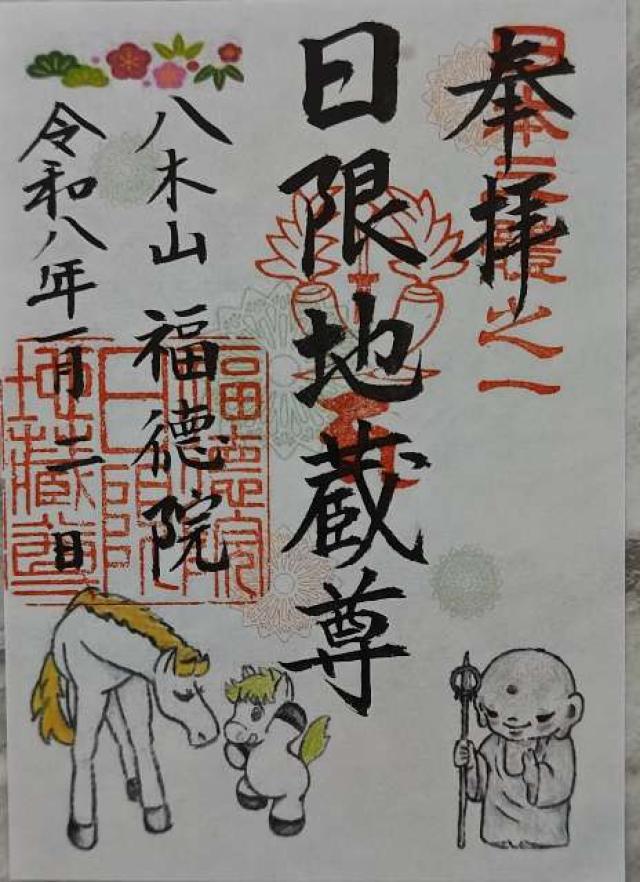 奉拝
日本三體之一
日限地蔵尊
八木山 福徳院
令和八年一月二日
福徳院
日限
地蔵尊